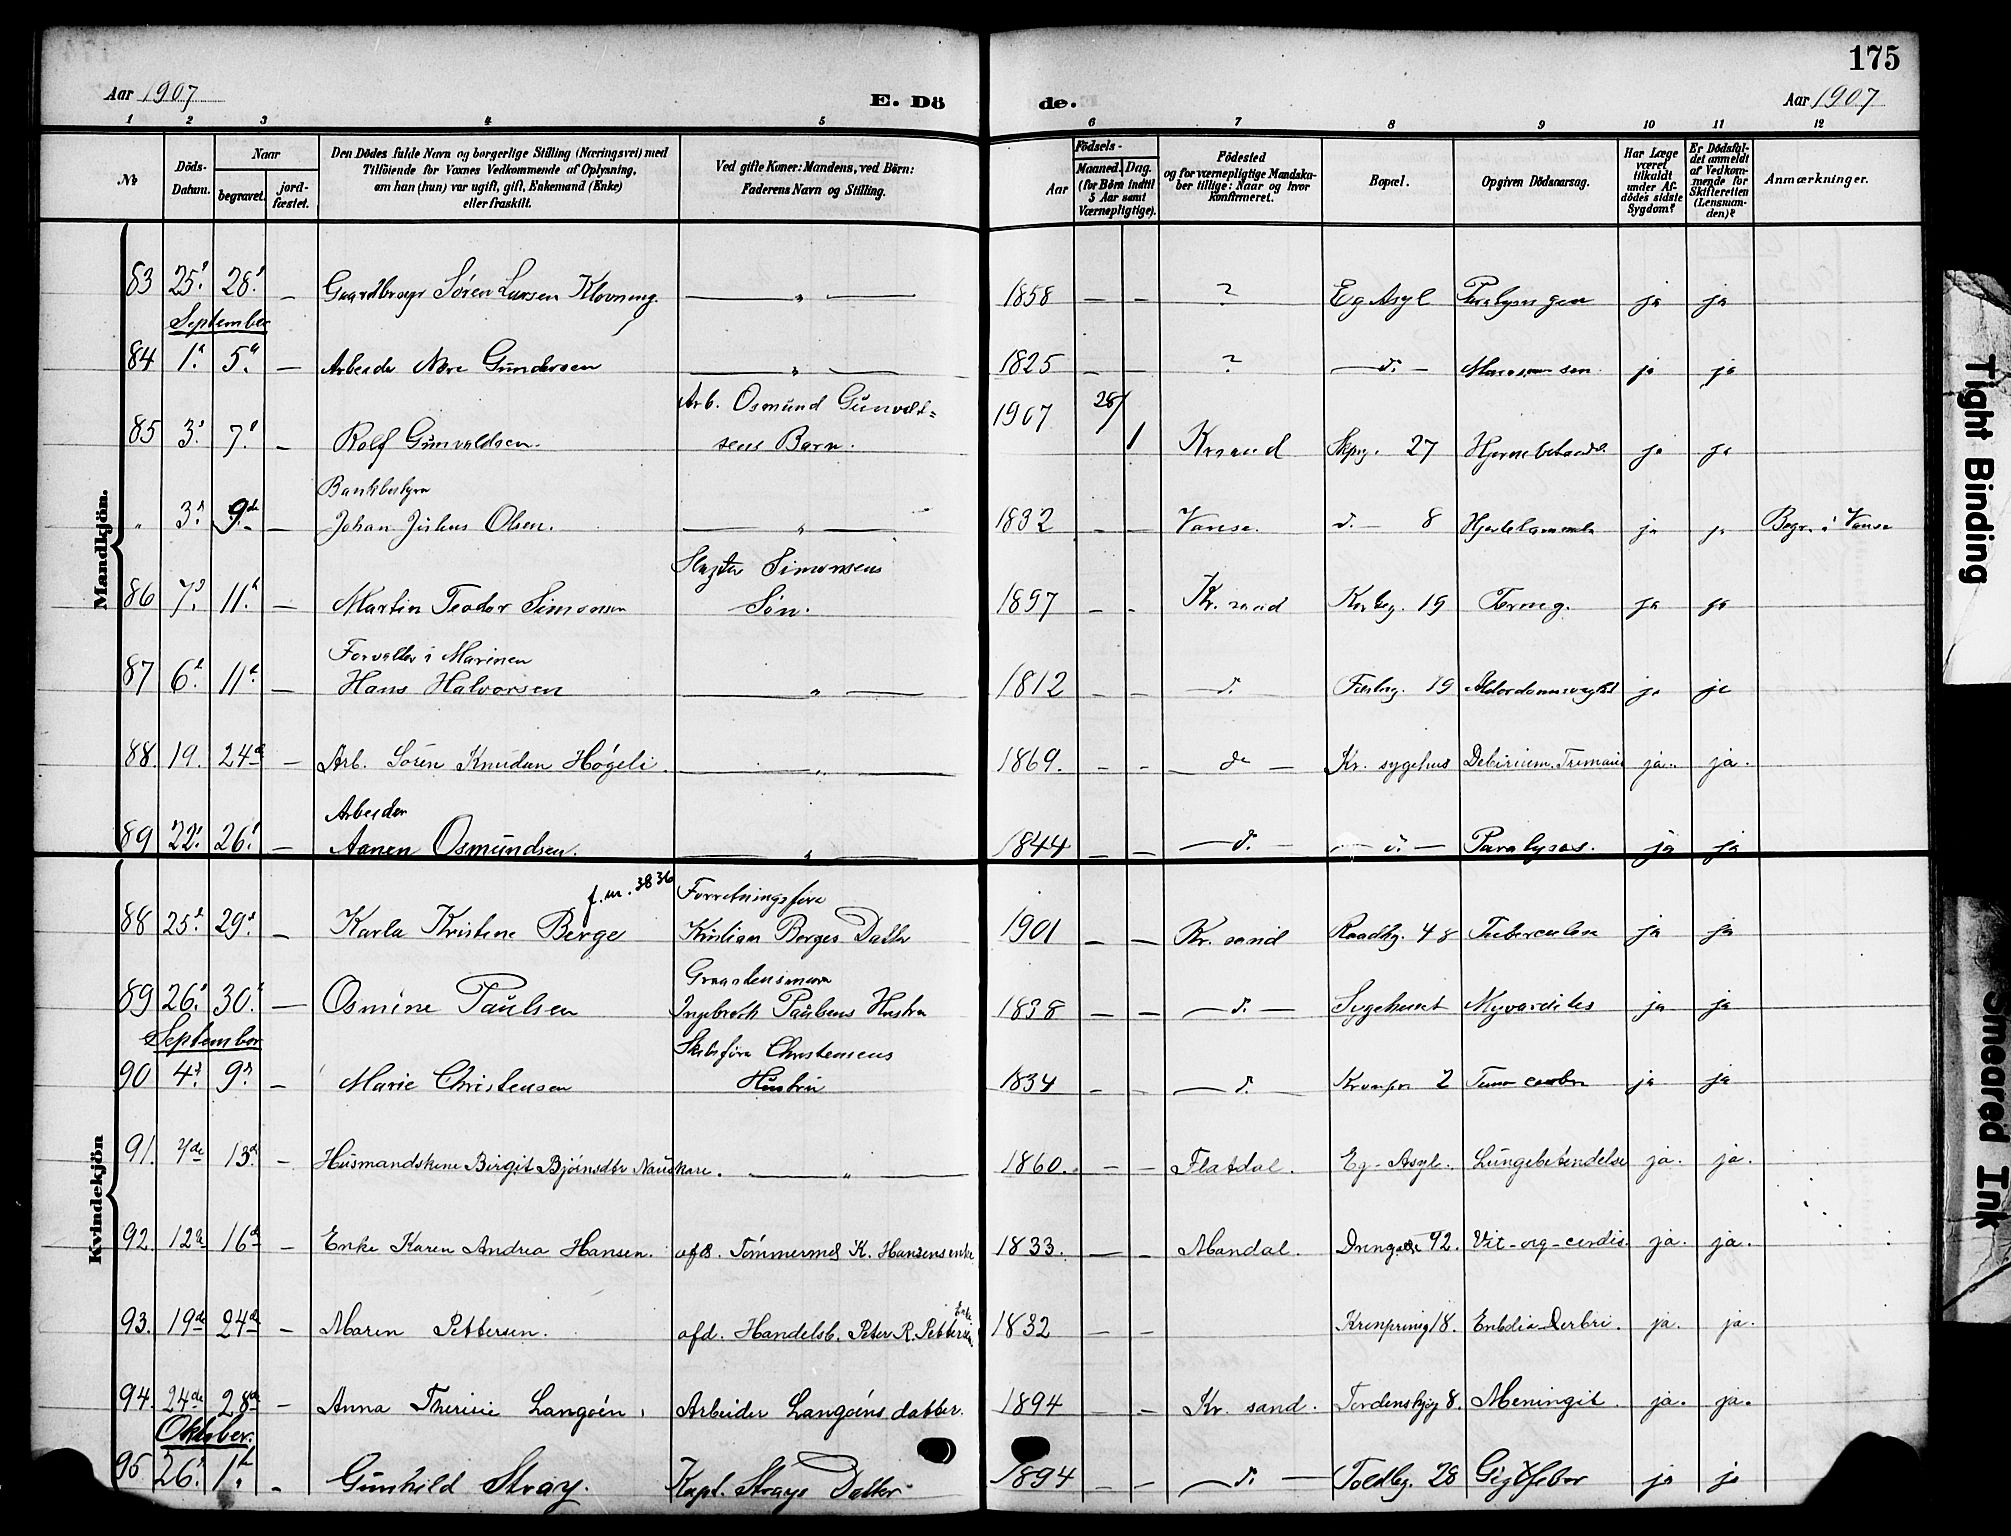 175
Aar 1907
E. Dö
de.
Aar 1907
1 2 3 4 5 6 7 8 9 10 11 12
No.
Döds-
Datum.
Naar
begravet.
jord-
fæstet.
Den Dödes fulde Navn og borgerlige Stilling (Næringsvei) med
Tilföiende for Voxnes Vedkommende af Oplysning,
om han (hun) var ugift, gift, Enkemand (Enke)
eller fraskilt.
Ved gifte Koner: Mandens, ved Börn:
Faderens Navn og Stilling.
Födsels-
Aar
Maaned. Dag.
(for Börn indtil
5 Aar samt
Værnepligtige).
Födested
og for værnepligtige Mandska-
ber tillige: Naar og hvor
konfirmeret.
Bopæl.
Opgiven Dödsaarsag.
Har Læge
været
tilkaldt
under Af-
dödes sidste
Sygdom?
Er Dödsfal-
det anmeldt
af Vedkom-
mende for
Skifteretten
(Lensman-
den)?
Anmærkninger.
Mandkjön.
83 25. 28. — Gaardbruger Sören Larsen Klovning — „ — 1858 — — ? Eg Asyl Paralysis gen ja ja
September
84 1. 5. — Arbeider Nere Gundersen — „ — 1825 — — ? — d. — ja ja
85 3. 7. — Rolf Gunvaldsen. Arb. Osmund Gunvald=
sens Barn. 1907 28/1 Krsand Skpg. 27 Hjernebetænd. ja ja
Bankbestyrer
„ 3. 9de — Johan Julius Olsen. — „ — 1832 — — Vanse. d. — 8 Hjertelammelse ja ja Begr. i Vanse
86 7. 11. — Martin Teodor Simonsen Simonsens
Søn. 1897 — — Kr.sand 19 ja ja
Forvalter i Marinen
87 6. 11. — Hans Halvorsen — „ — 1812 — — — d. 19 Alderdomssvaghd ja ja
88. 19. 24de — Arb. Sören Knudsen Högeli. — „ — 1869. — — — do — Kr. sygehus Delirium Tremens ja. ja.
Arbeider
89 22. 26. — Aanen Osmundsen. — „ — 1844 — — — d. — — d. — Paralyses. ja ja
Kvindekjön
f. nr. 38 36
88 25. 29. — Karla Kristine Berge Forretningsfører
Kristian Berges Datter 1901 — — Kr.sand Raadhg. 48 Tuberculose ja ja
89 26. 30. — Osmine Paulsen
Ingebreth Paulsens Hustru 1838 — — — d. — Sygehuset Myocarditis ja ja
September
90 4. 9. — Marie Christensen Skibsfører Christensens
Hustru 1834 — — — d. 2 ja ja
91. 4de 13de — Husmandskone Birgit Bjöinsdtr Nauskare. — „ — 1860. — — Flatdal. Eg-Asyl. Lungebetendelse ja. ja.
92. 12de 16de — Enke Karen Andrea Hansen. afd. Tömmermd K. Hansens enke 1833. — — Mandal. Drongade 92. Vit-org-cordis. ja. ja.
93. 19de 24de — Maren Pettersen. afd. Handelsb. Peter R. Pettersen Enke 1832 — — Kronprinsg 18. ja. ja.
94. 24de 28de — Anna Therisie Langöen. Arbeider Langöens datter. 1894 — — Kr.sand. Tordenskjg 8. Meningit. ja. ja.
Oktober.
95 26. 1. — Gunhild Stray. Kapt. Strays Datter 1894 — — — d. — Toldbg. 28 Gigtfeber ja ja
Tight Binding
Smeared Ink